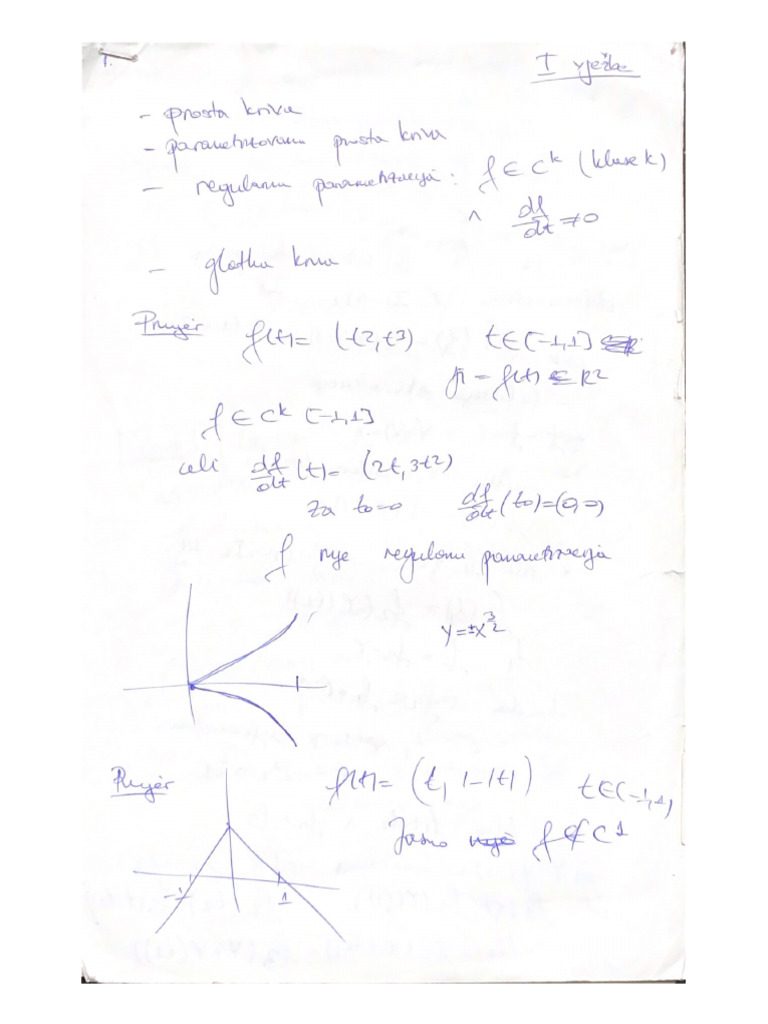 1.
I vježbe
- prosta kriva
- parametrizovana prosta kriva
- regularna parametrizacija: f ∈ C^k (klase k)
∧ df/dt ≠ 0
- glatka kriva
Primjer f(t) = (t2, t3) t ∈ [-1,1]
f(t) ∈ R2
f ∈ C^k [-1,1]
ali df/dt (t) = (2t, 3t2)
za t0=0 df/dt (t0) = (0,0)
f nije regularna parametrizacija
y = ±x^3/2
Primjer f(t) = (t, 1-|t|) t ∈ (-1,1)
Jasno f ∉ C1
-1 1